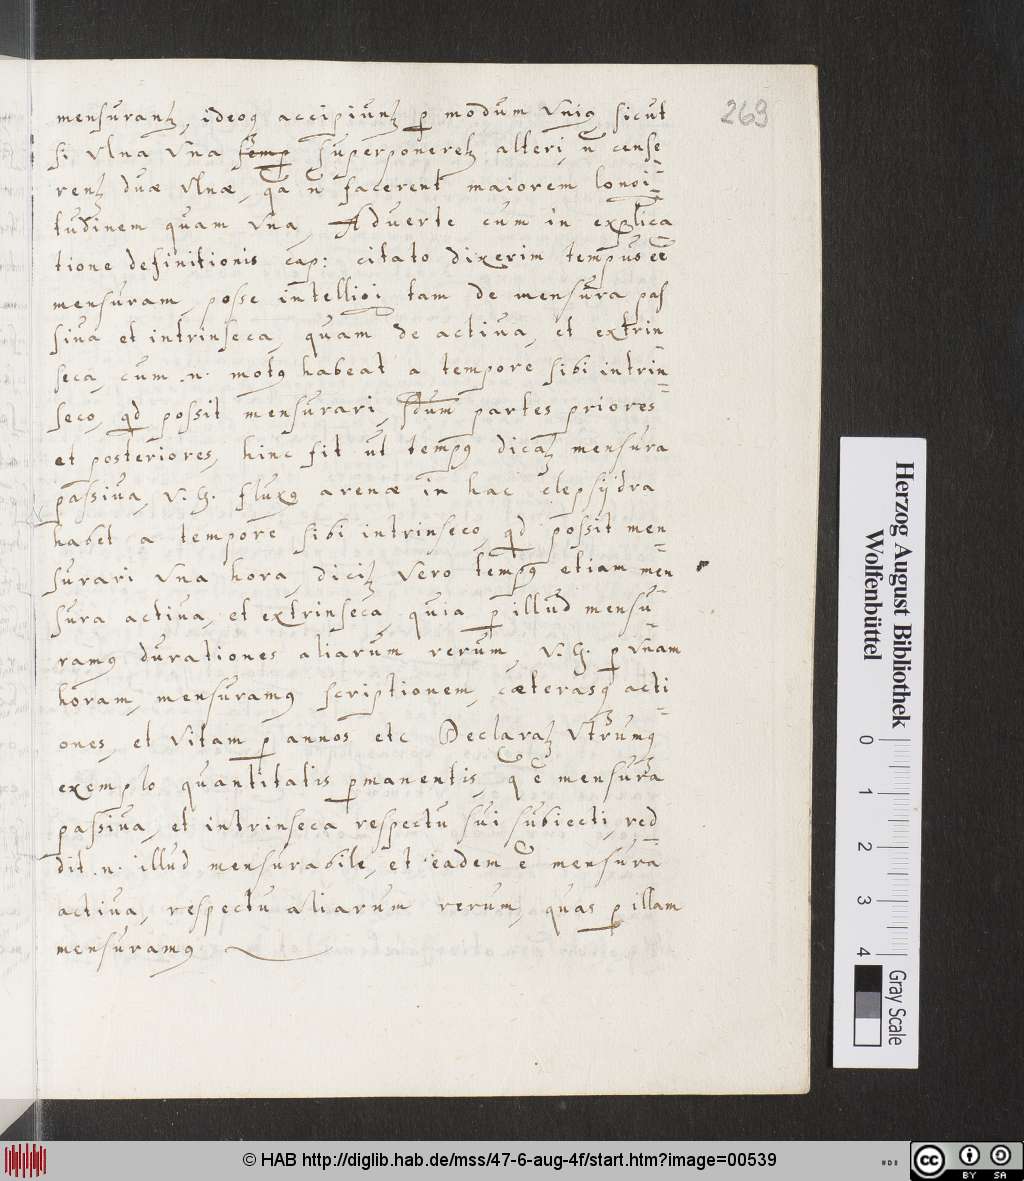 269
mensurantꝫ, ideoqꝫ accipiuntꝫ ꝑ modum vniꝯ, sicut
si vlna vna superponeretꝫ alteri, n̄ cense
rentꝫ duæ vlnæ, q̄a n̄ facerent maiorem longi=
tudinem quam vna, Aduerte cum in explica
tione definitionis cap: citato dixerim tempus ēē
mensuram, posse intelligi tam de mensura pas
siua et intrinseca, quam de actiua, et extrin=
seca, cum .n. motꝯ habeat a tempore sibi intrin=
seco, qd possit mensurari, scdum partes priores
et posteriores, hinc fit ut tempꝯ dicatꝫ mensura
passiua, v.g. fluxꝯ arenæ in hac clepsydra
habet a tempore sibi intrinseco, qd possit men=
surari vna hora, dicitꝫ vero tempꝯ etiam men=
sura actiua, et extrinseca, quia ꝑ illud mensu=
ramꝯ durationes aliarum rerum, v.g. ꝑ vnam
horam, mensuramꝯ scriptionem, cæterasqꝫ acti=
ones, et vitam ꝑ annos etc Declaratꝫ vtrumqꝫ
exemplo quantitatis ꝑmanentis, q̄ ē mensura
passiua, et intrinseca respectu sui subiecti, red=
dit .n. illud mensurabile, et eadem ē mensura
actiua, respectu aliarum rerum, quas ꝑ illam
mensuramꝯ
Herzog August Bibliothek
Wolfenbüttel
0 1 2 3 4
Gray Scale
© HAB http://diglib.hab.de/mss/47-6-aug-4f/start.htm?image=00539
cc BY SA